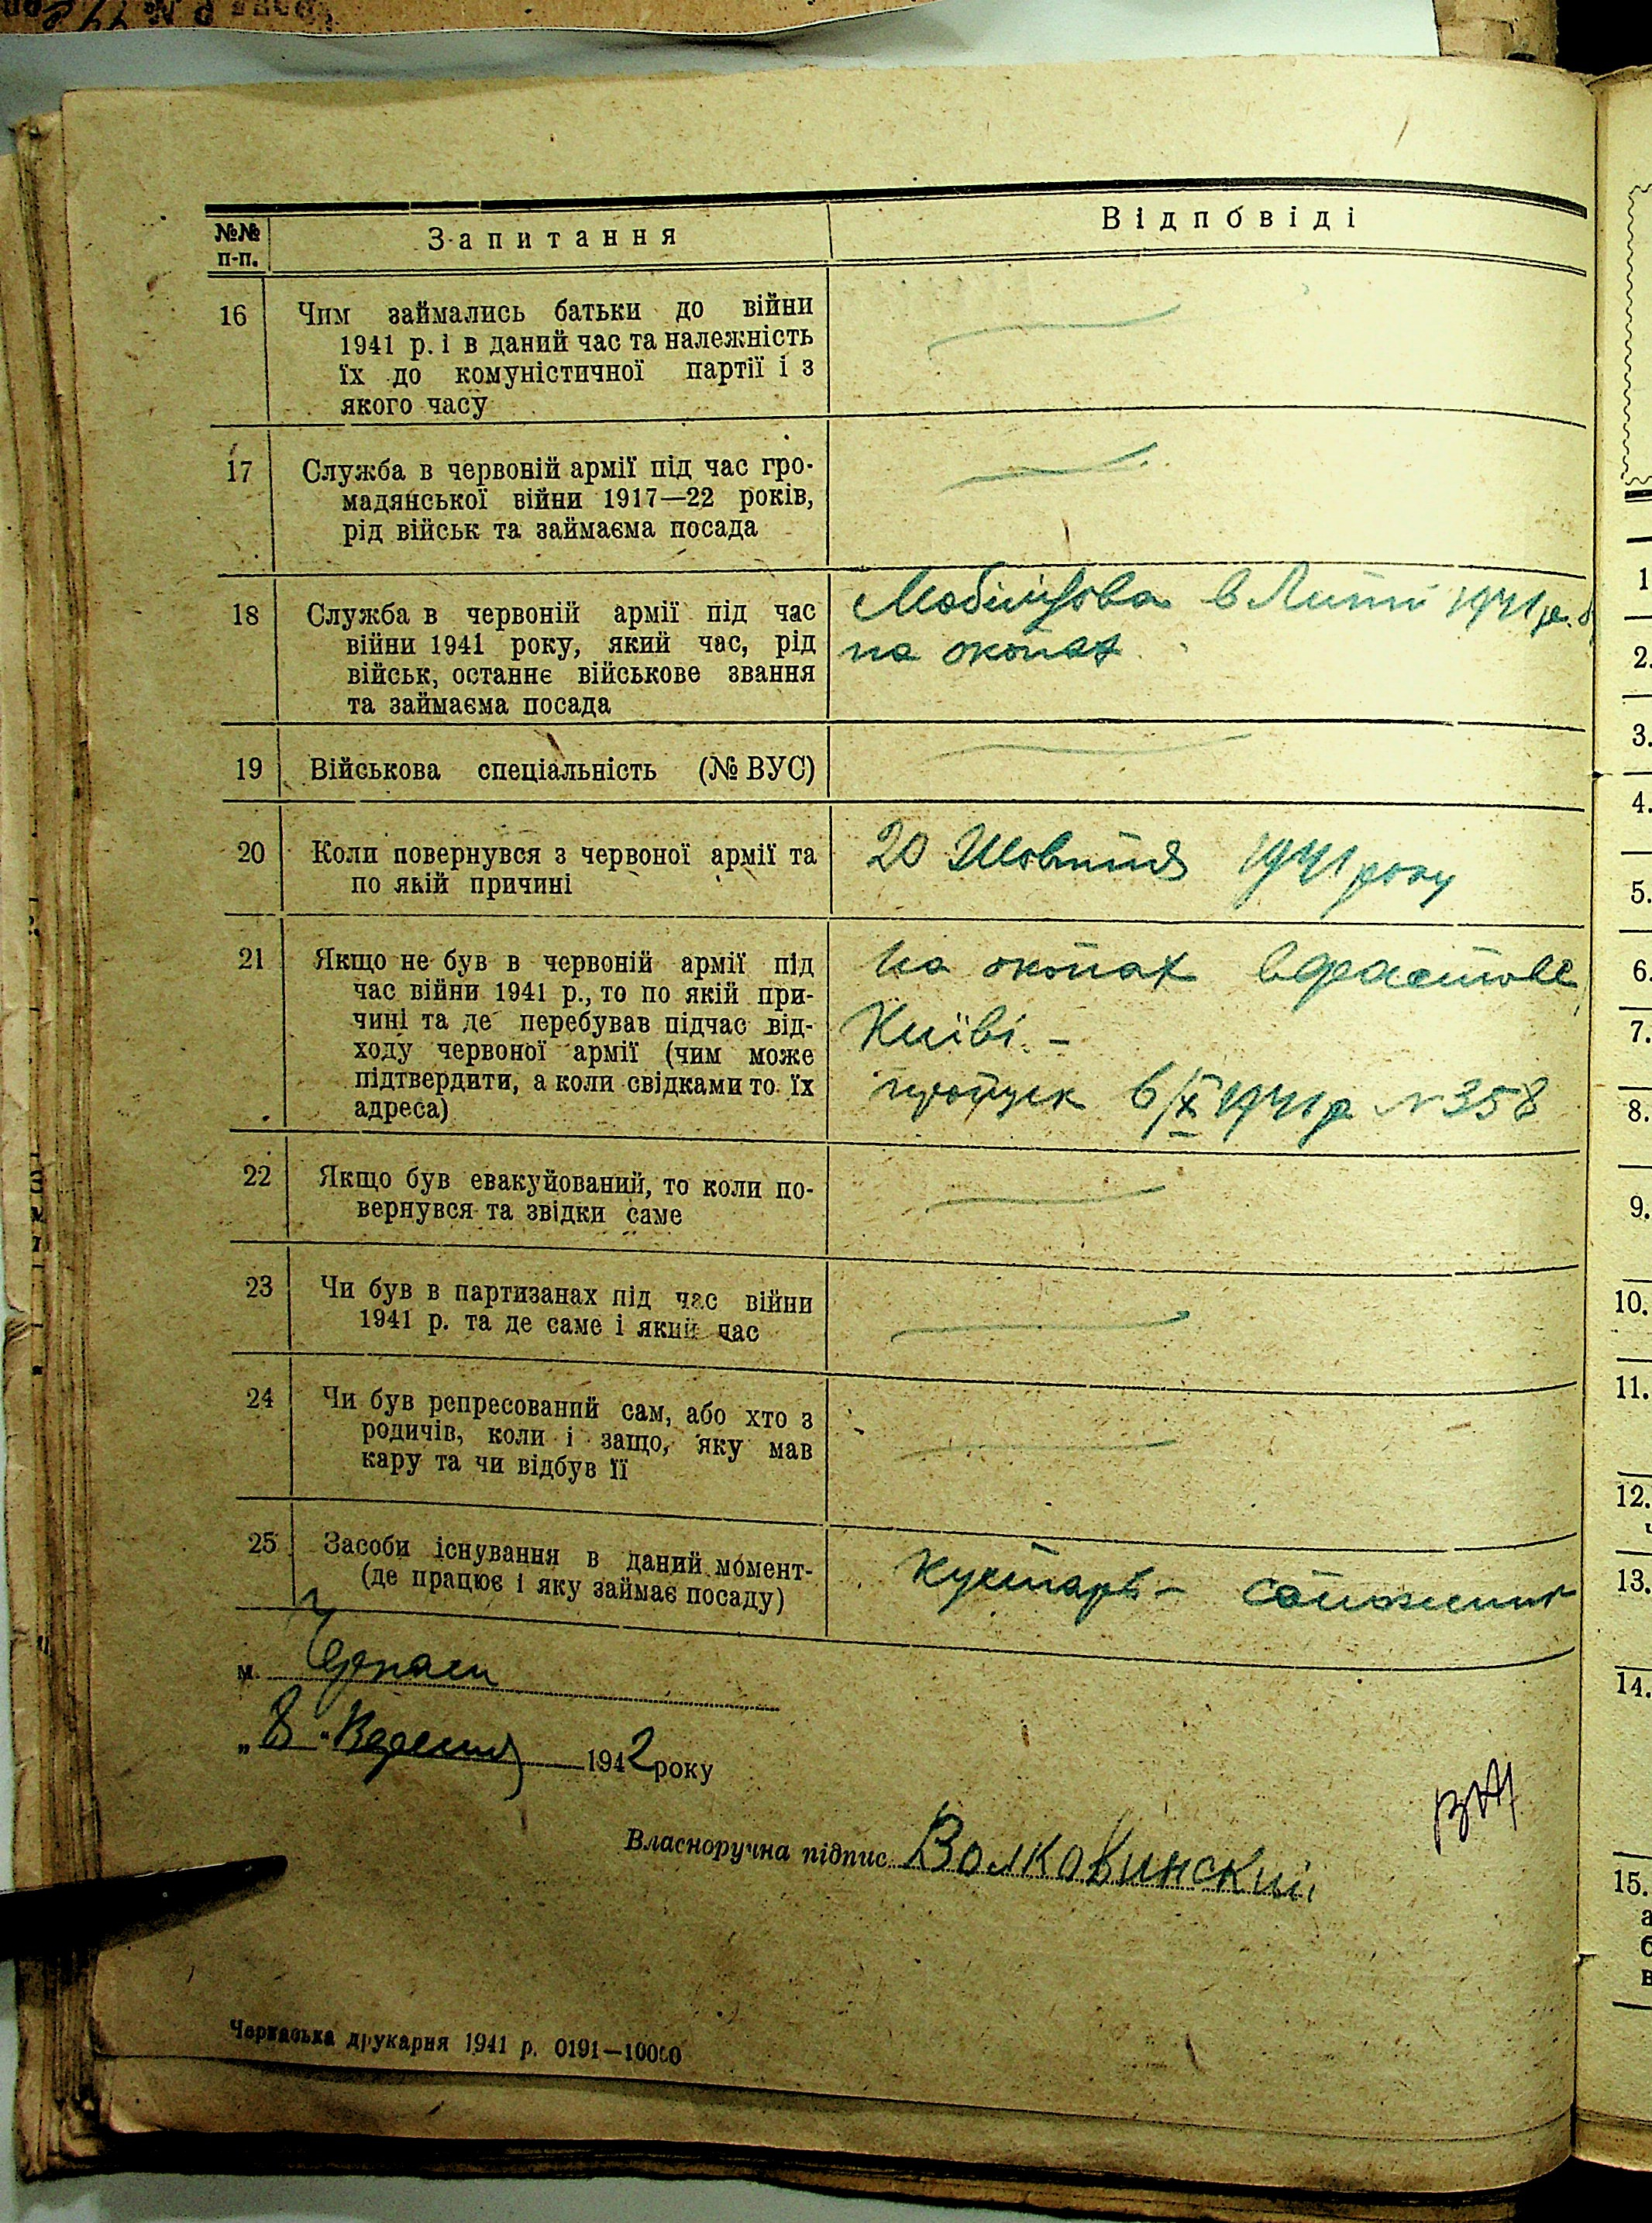 №№ п-п.
Запитання
Відповіді
16
Чим займались батьки до війни
1941 р. і в даний час та належність
їх до комуністичної партії і з
якого часу
17
Служба в червоній армії під час гро-
мадянської війни 1917—22 років,
рід військ та займаєма посада
18
Служба в червоній армії під час
війни 1941 року, який час, рід
військ, останнє військове звання
та займаєма посада
Мобілізова в 1941 р.
на окопах
19
Військова спеціальність (№ ВУС)
20
Коли повернувся з червоної армії та
по якій причині
20 Жовтня 1941 року
21
Якщо не був в червоній армії під
час війни 1941 р., то по якій при-
чині та де перебував підчас від-
ходу червоної армії (чим може
підтвердити, а коли свідками то їх
адреса)
на окопах
Київі –
пропуск 6/X 1941 р N 358
22
Якщо був евакуйований, то коли по-
вернувся та звідки саме
23
Чи був в партизанах під час війни
1941 р. та де саме і який час
24
Чи був репресований сам, або хто з
родичів, коли і защо, яку мав
кару та чи відбув її
25
Засоби існування в даний момент-
(де працює і яку займає посаду)
Кустарь – сапожник
м. Черкаси
„8" Вересня 1942 року
Власноручна підпис Волковинский
Черкаська друкарня 1941 р. 0191—10000
1
2.
3.
4.
5.
6.
7.
8.
9.
10.
11.
12.
13.
14.
15.